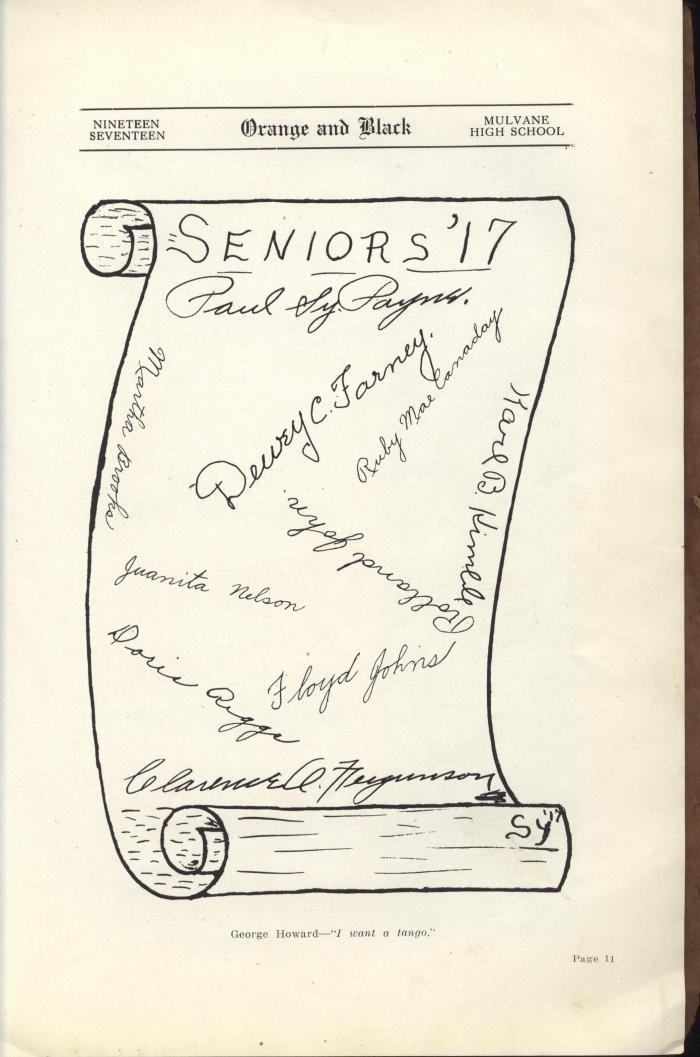 NINETEEN
SEVENTEEN
Orange and Black
MULVANE
HIGH SCHOOL
SENIORS '17
Paul Sy. Payne.
Dewey C. Farney.
Ruby Mae Canaday
Martha Brooks
Karl B.
Rolland
Juanita Nelson
Doris Riggs
Floyd Johns
Clarence A. Fergunson
Sy '17
George Howard—"I want a tango."
Page 11